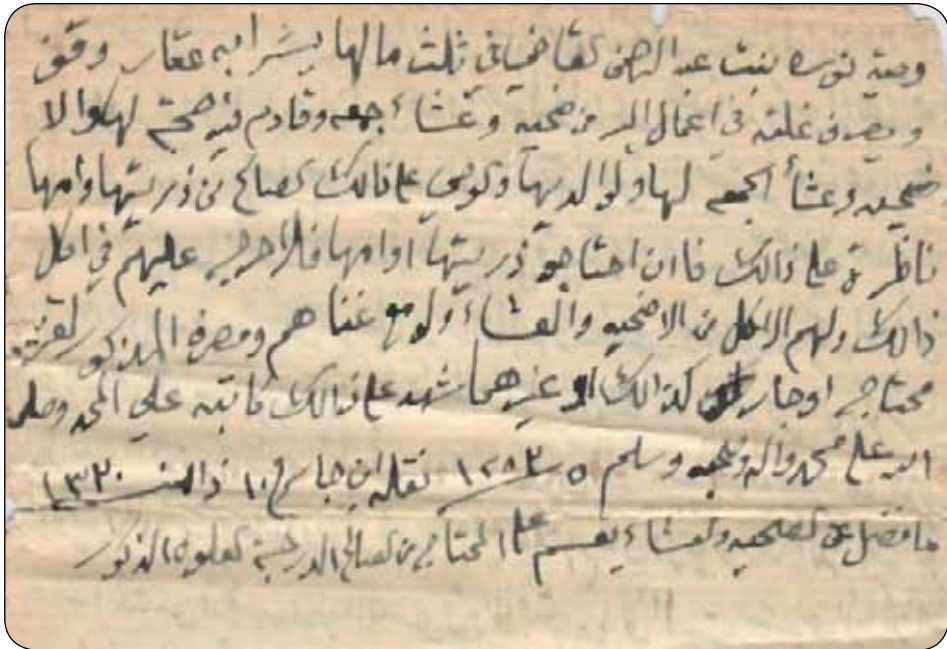 وصية نوره بنت عبد الرحمن القاضي في ثلث مالها يشرا به عقار وقف
ويصرف غلته في اعمال البر من ضحيه وعشاء جمعه وقادم فيه ضحية لها والا
ضحيه وعشاء الجمعه لها ولوالديها والوصي على ذالك الصالح من ذريتها وامها
ناظرة على ذالك فاان احتاجو ذريتها او امها فلا حرج عليهم في اكل
ذالك ولهم الاكل من الاضحيه والعشاء ولو مع غناهم ومصرفه المذكور لقريب
محتاج او جار كذالك او غيرهما شهد على ذالك كاتبه علي المحمد وصلى
الله على محمد واله وصحبه وسلم ٥ ١٢٨٢ نقله من ١٠ ١٣٢٠
ما فضل عن الضحيه والعشاء يقسم على المحتاج من الصالح